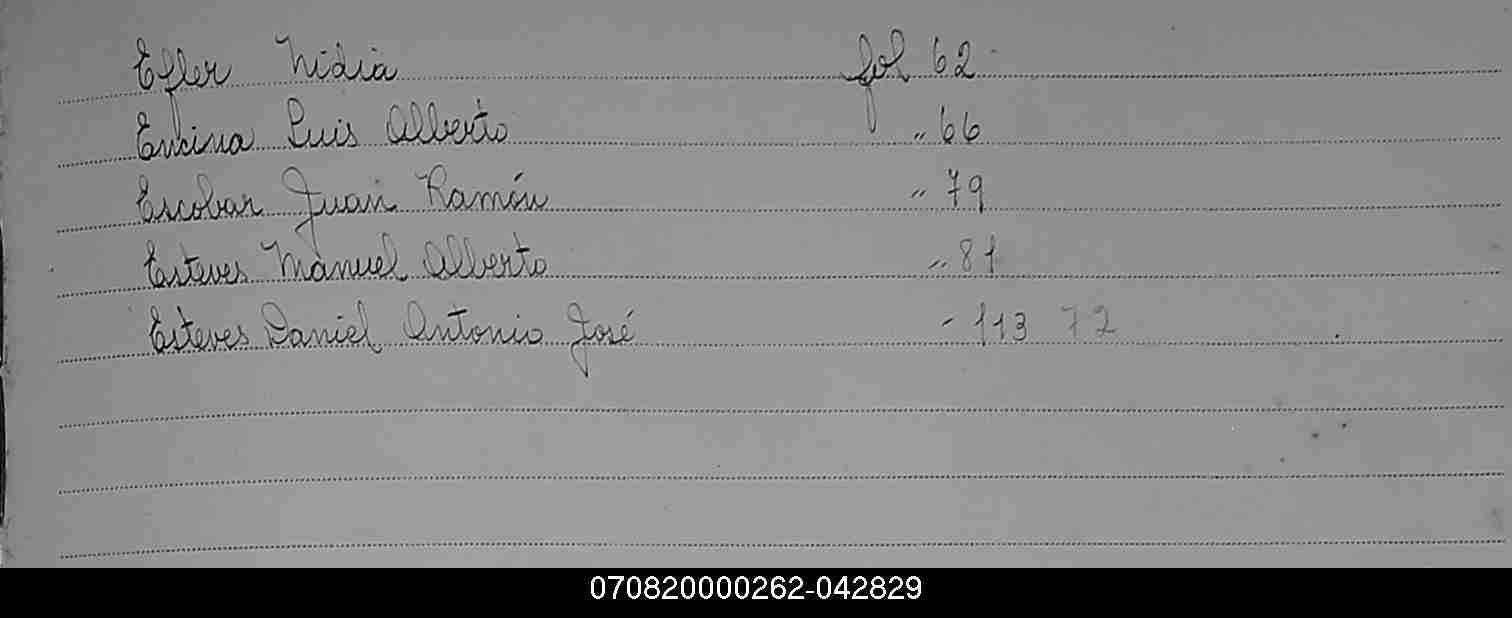 Efler Nidia fol 62
Encina Luis Alberto " 66
Escobar Juan Ramón " 79
Esteves Manuel Alberto " 81
Esteves Daniel Antonio José " 113 72
070820000262-042829